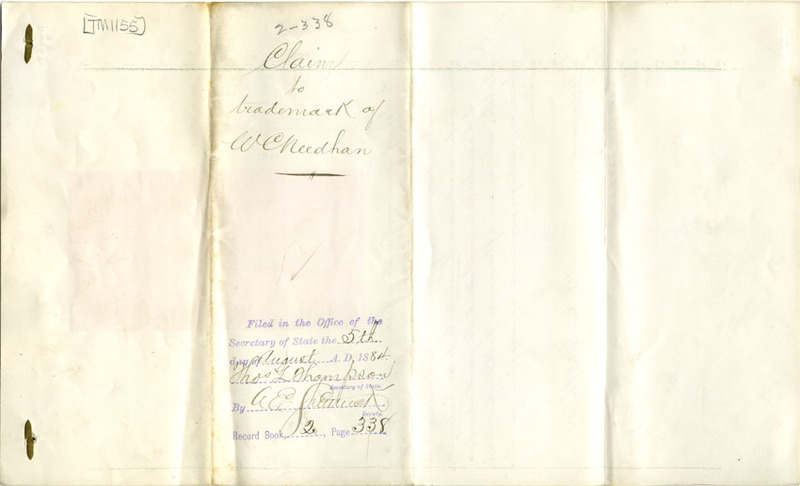 [TM1155]
2-338
Claim
to
trademark of
W C Needhan
Filed in the Office of the
Secretary of State the 5th
day of August A. D. 1884
Thos L Thompson
Secretary of State.
By A E
Deputy.
Record Book, 2, Page 338